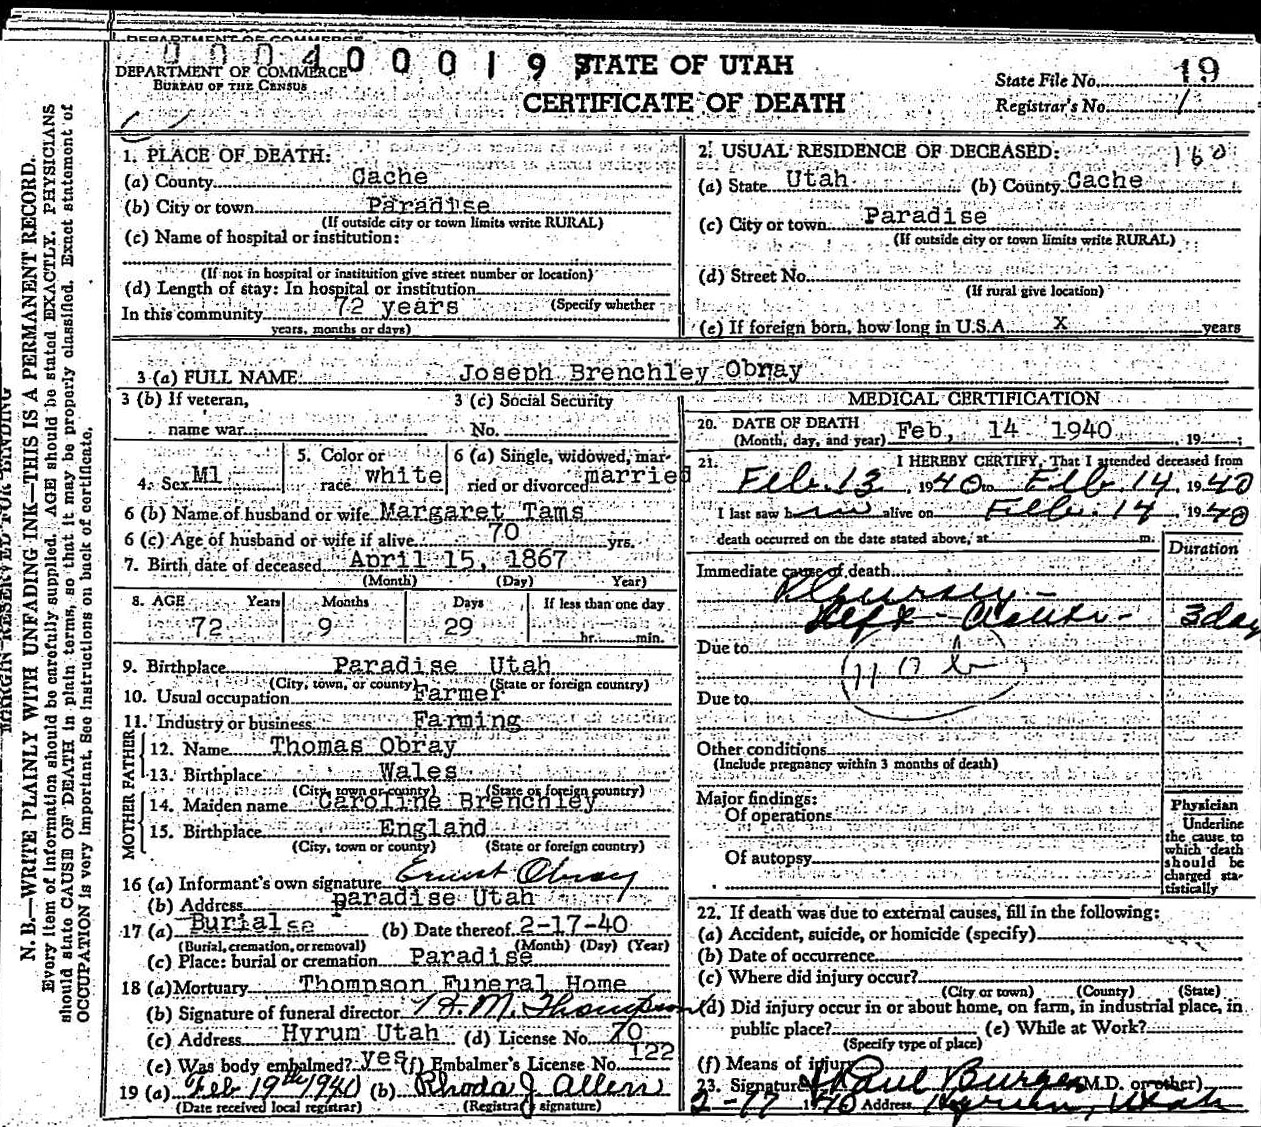 DEPARTMENT OF COMMERCE
0004000193 STATE OF UTAH
DEPARTMENT OF COMMERCE
BUREAU OF THE CENSUS
CERTIFICATE OF DEATH
State File No. 19
Registrar's No. 1
N. B.—WRITE PLAINLY WITH UNFADING INK—THIS IS A PERMANENT RECORD.
Every item of information should be carefully supplied. AGE should be stated EXACTLY. PHYSICIANS
should state CAUSE OF DEATH in plain terms, so that it may be properly classified. Exact statement of
OCCUPATION is very important. See instructions on back of certificate.
MARGIN RESERVED FOR BINDING
1. PLACE OF DEATH:
(a) County Cache
(b) City or town Paradise
(If outside city or town limits write RURAL)
(c) Name of hospital or institution:
(If not in hospital or institution give street number or location)
(d) Length of stay: In hospital or institution
In this community 72 years (Specify whether
years, months or days)
2. USUAL RESIDENCE OF DECEASED: 160
(a) State Utah (b) County Cache
(c) City or town Paradise
(If outside city or town limits write RURAL)
(d) Street No.
(If rural give location)
(e) If foreign born, how long in U.S.A. X years
3 (a) FULL NAME Joseph Brenchley Obray
3 (b) If veteran, name war
3 (c) Social Security No.
4. Sex Ml
5. Color or race white
6 (a) Single, widowed, married or divorced married
6 (b) Name of husband or wife Margaret Tams
6 (c) Age of husband or wife if alive 70 yrs.
7. Birth date of deceased April 15, 1867
(Month) (Day) Year)
8. AGE Years Months Days If less than one day
72 9 29 hr. min.
9. Birthplace Paradise Utah
(City, town, or county) (State or foreign country)
10. Usual occupation Farmer
11. Industry or business Farming
FATHER
12. Name Thomas Obray
13. Birthplace Wales
(City, town or county) (State or foreign country)
MOTHER
14. Maiden name Caroline Brenchley
15. Birthplace England
(City, town or county) (State or foreign country)
16 (a) Informant's own signature Ernest Obray
(b) Address paradise Utah
17 (a) Burial (b) Date thereof 2-17-40
(Burial, cremation, or removal) (Month) (Day) (Year)
(c) Place: burial or cremation Paradise
18 (a) Mortuary Thompson Funeral Home
(b) Signature of funeral director H. M. Thompson
(c) Address Hyrum Utah (d) License No. 70
(e) Was body embalmed? yes (f) Embalmer's License No. 122
19 (a) Feb 19th 1940 (b) Rhoda J. Allen
(Date received local registrar) (Registrar's signature)
MEDICAL CERTIFICATION
20. DATE OF DEATH
(Month, day, and year) Feb, 14 1940 , 19 ;
21. I HEREBY CERTIFY, That I attended deceased from
Feb. 13, 1940 to Feb. 14, 1940
I last saw h alive on Feb. 14, 1940
death occurred on the date stated above, at m.
Duration
Immediate cause of death
Pleurisy -
Left - Acute - 3 day
Due to
110 b
Due to
Other conditions
(Include pregnancy within 3 months of death)
Major findings:
Of operations
Of autopsy
Physician
Underline
the cause to
which death
should be
charged sta-
tistically
22. If death was due to external causes, fill in the following:
(a) Accident, suicide, or homicide (specify)
(b) Date of occurrence
(c) Where did injury occur?
(City or town) (County) (State)
(d) Did injury occur in or about home, on farm, in industrial place, in
public place? (e) While at Work?
(Specify type of place)
(f) Means of injury
23. Signature Paul Burgess (M.D. or other)
2-17 1940 Address Hyrum, Utah